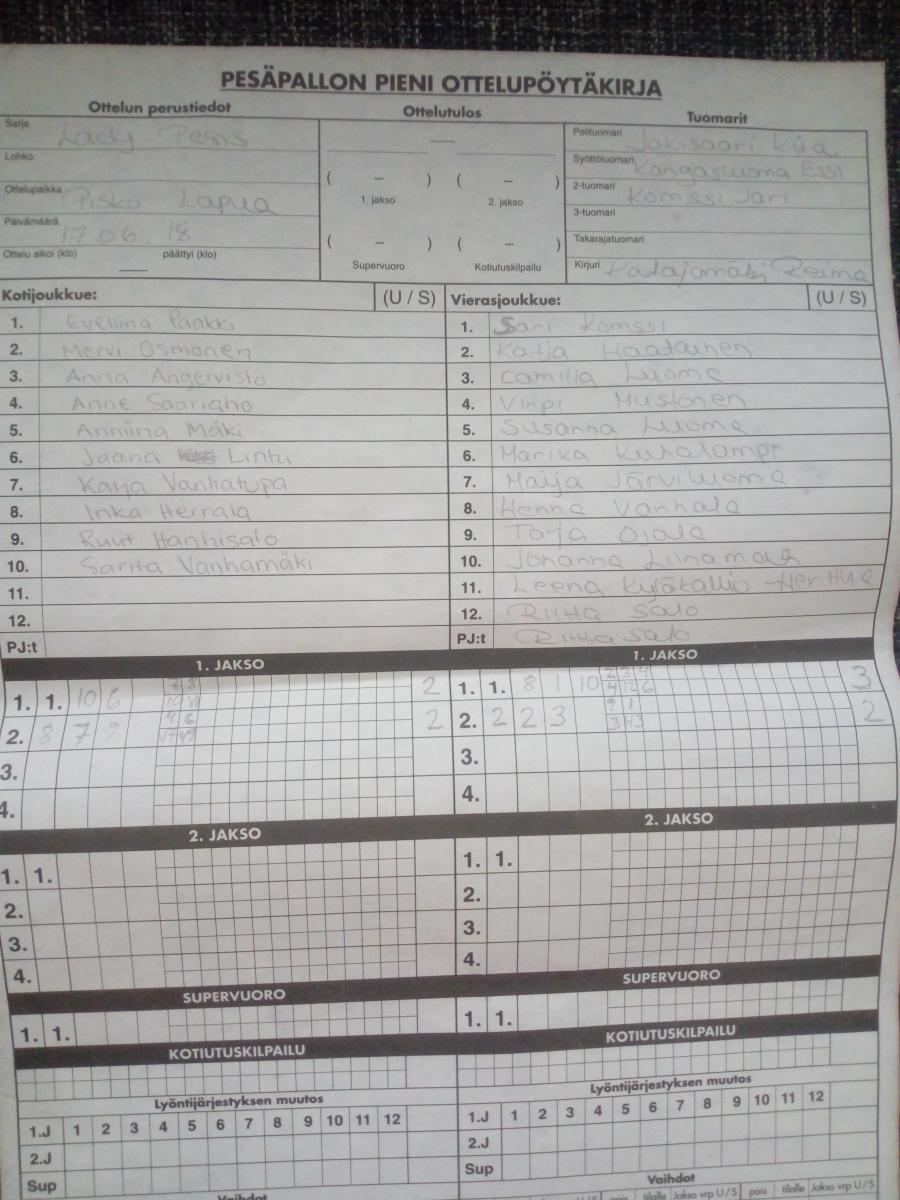 PESÄPALLON PIENI OTTELUPÖYTÄKIRJA
Ottelun perustiedot
Sarja Lady Pesis
Lohko
Ottelupaikka Pisko Lapua
Päivämäärä 17 06. 18
Ottelu alkoi (klo) — päättyi (klo)
Ottelutulos
—
( – ) ( – )
1. jakso 2. jakso
( – ) ( – )
Supervuoro Kotiutuskilpailu
Tuomarit
Pelituomari Jokisaari
Syöttötuomari Kangasluoma Essi
2-tuomari Komssi Jari
3-tuomari
Takarajatuomari
Kirjuri Katajamäki Reima
Kotijoukkue: (U / S)
1. Eveliina Paakki
2. Mervi Osmonen
3. Anna Angervisto
4. Anne Saariaho
5. Anniina Mäki
6. Jaana Lintu
7. Katja Vanhatupa
8. Inka Herrala
9. Ruut Hanhisalo
10. Sarita Vanhamäki
11.
12.
PJ:t
Vierasjoukkue: (U / S)
1. Sari Komssi
2. Katja Haatainen
3. Camilla Luoma
4. Virpi Mustonen
5. Susanna Luoma
6. Marika Kuhalampi
7. Maija Järviluoma
8. Henna Vanhala
9. Tarja Ojala
10. Johanna Liinamaa
11. Leena Kytäkallio -Herttua
12. Riitta Salo
PJ:t Riitta Salo
1. JAKSO
1. 1. 10 6 2
2. 8 7 9 2
3.
4.
1. JAKSO
1. 1. 8 1 10 3
2. 2 2 3 2
3.
4.
2. JAKSO
1. 1.
2.
3.
4.
2. JAKSO
1. 1.
2.
3.
4.
SUPERVUORO
1. 1.
SUPERVUORO
1. 1.
KOTIUTUSKILPAILU
KOTIUTUSKILPAILU
Lyöntijärjestyksen muutos
1.J 1 2 3 4 5 6 7 8 9 10 11 12
2.J
Sup
Vaihdot
Lyöntijärjestyksen muutos
1.J 1 2 3 4 5 6 7 8 9 10 11 12
2.J
Sup
Vaihdot
pois tilalle Jakso vrp U/S pois tilalle Jakso vrp U/S